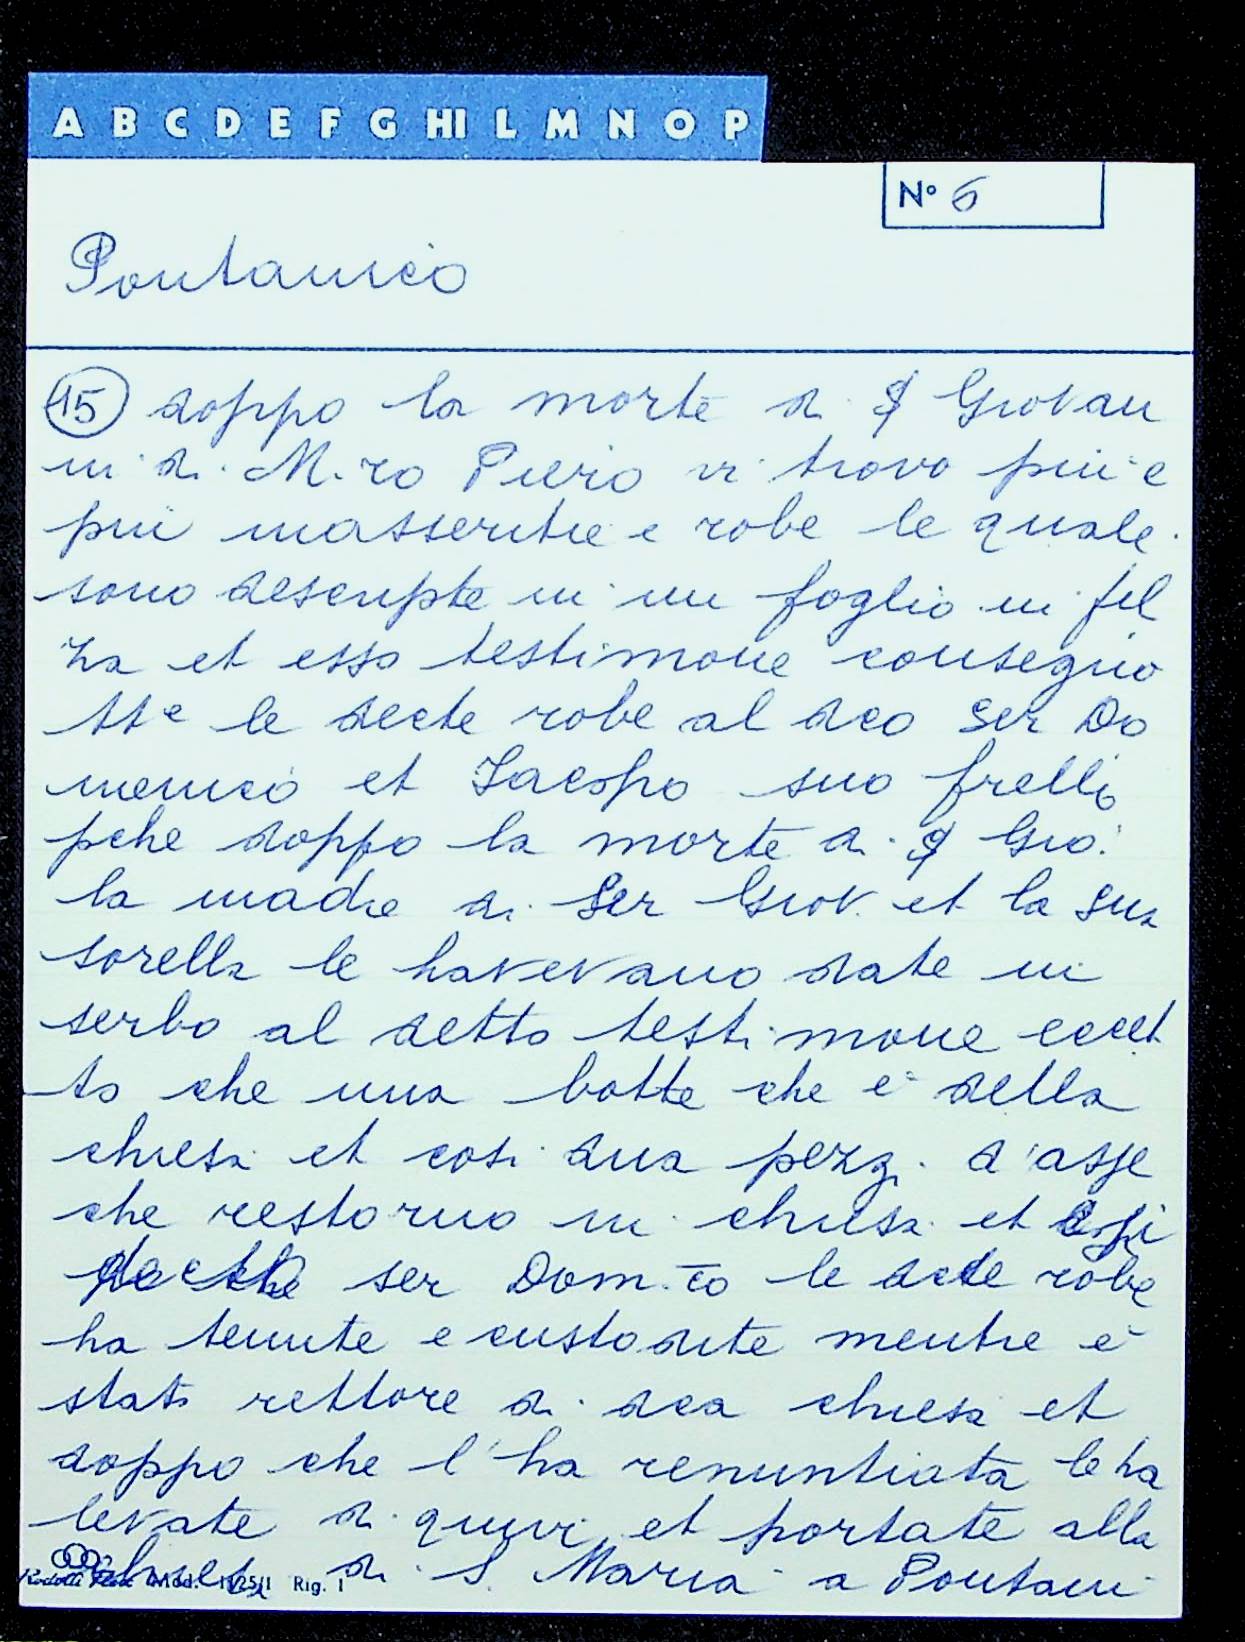 A B C D E F G HI L M N O P
N° 6
Pontanico
15 doppo la morte di S Giovan
ni di M.ro Piero vi trovo piu e
piu masseritie e robe le quale
sono descripte in un foglio in fil
za et esso testimone consegno
tte le decte robe al dco Ser Do
menico et Jacopo suo frello
pche doppo la morte di S Gio:
la madre di Ser Giov. et la sua
sorella le havevano date in
serbo al detto testimone eccet
to che una botte che e della
chiesa et cosi dua pezzi d'asse
che restorno in chiesa et
ser Dom.co le dcte robe
ha tenute e custodite mentre e
stato rettore di dca chiesa et
doppo che l'ha renuntiata le ha
levate di quivi et portate alla
chiesa di S. Maria a Pontani
Mod. 11/25/1 Rig. 1